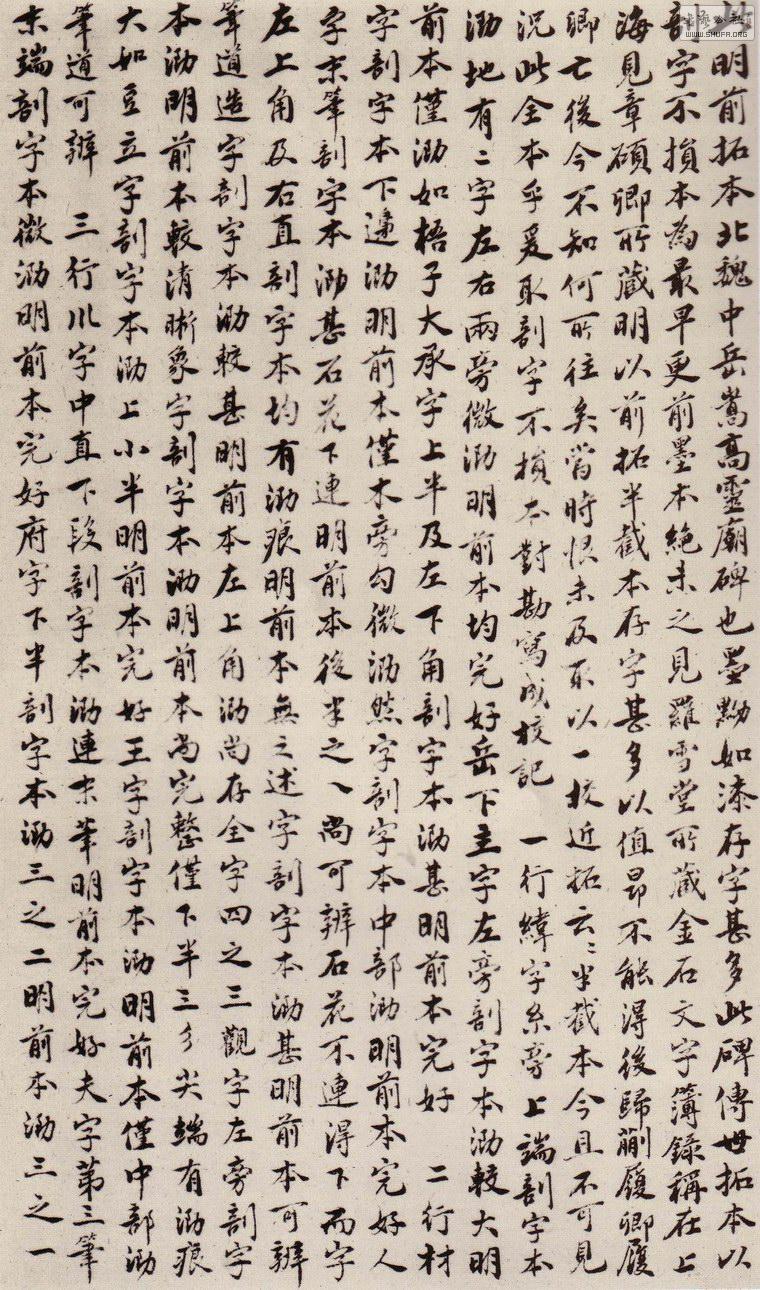 明前拓本北魏中岳嵩高靈廟碑也墨黝如漆存字甚多此碑傳世拓本以
剖字不損本為最早更前墨本絶未之見羅雪堂所藏金石文字簿錄稱在上
海見章碩卿所藏明以前拓半截本存字甚多以值昂不能得後歸蒯履卿履
卿亡後今不知何所往矣當時恨未及取以一校近拓云云半截本今且不可見
況此全本乎爰取剖字不損本對勘寫成校記 一行緯字糸旁上端剖字本
泐地有二字左右兩旁微泐明前本均完好岳下主字左旁剖字本泐較大明
前本僅泐如梧子大承字上半及左下角剖字本泐甚明前本完好 二行材
字剖字本下邊泐明前本僅木旁勾微泐然字剖字本中部泐明前本完好人
字末筆剖字本泐甚石花下連明前本後半之乀尚可辨石花不連得下而字
左上角及右直剖字本均有泐痕明前本無之述字剖字本泐甚明前本可辨
筆道造字剖字本泐較甚明前本左上角泐尚存全字四之三觀字左旁剖字
本泐明前本較清晰象字剖字本泐明前本尚完整僅下半三彡尖端有泐痕
大如豆立字剖字本泐上小半明前本完好王字剖字本泐明前本僅中部泐
筆道可辨 三行川字中直下段剖字本泐連末筆明前本完好夫字第三筆
末端剖字本微泐明前本完好府字下半剖字本泐三之二明前本泐三之一
WWW.SHUFA.ORG